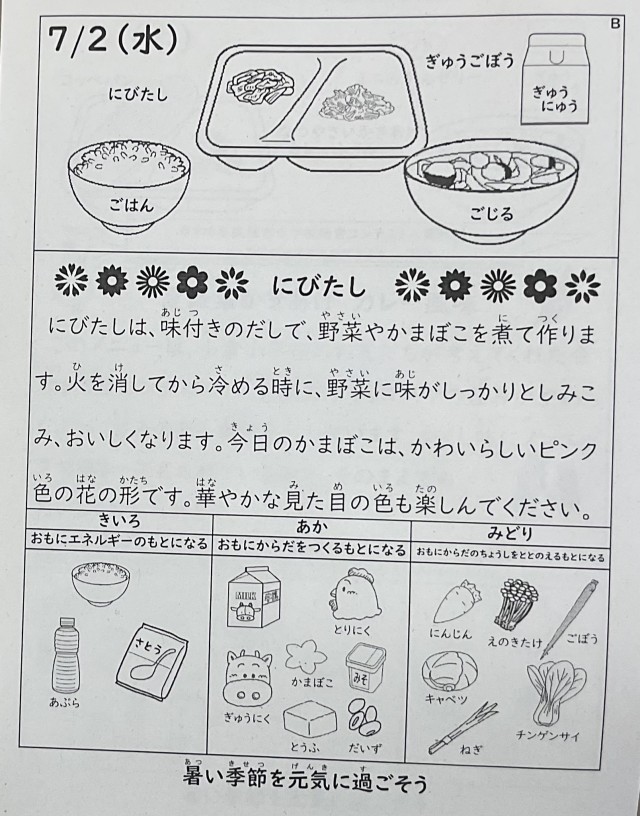 B
7/2(水)
にびたし
ぎゅうごぼう
ぎゅう
にゅう
ごはん
ごじる
にびたし
にびたしは、味付きのだしで、野菜やかまぼこを煮て作りま
す。火を消してから冷める時に、野菜に味がしっかりとしみこ
み、おいしくなります。今日のかまぼこは、かわいらしいピンク
色の花の形です。華やかな見た目の色も楽しんでください。
きいろ
おもにエネルギーのもとになる
あか
おもにからだをつくるもとになる
みどり
おもにからだのちょうしをととのえるもとになる
さとう
あぶら
MILK
とりにく
かまぼこ
みそ
ぎゅうにく
とうふ
だいず
にんじん
えのきたけ
ごぼう
キャベツ
チンゲンサイ
ねぎ
暑い季節を元気に過ごそう